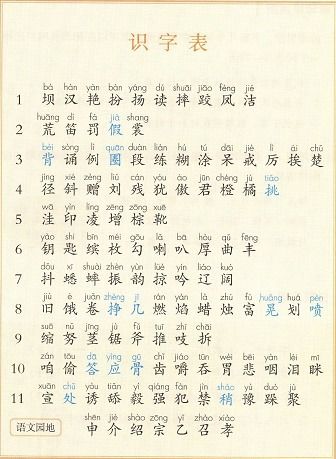 识字表
bà hàn yàn bàn yáng dú shuāi jiāo fèng jié
1 坝 汉 艳 扮 扬 读 摔 跤 凤 洁
huāng dí fá jià shang
2 荒 笛 罚 假 裳
bèi sòng lì quān duàn liàn hú tú dāi jiè lì ái chǔ
3 背 诵 例 圈 段 练 糊 涂 呆 戒 厉 挨 楚
jìng xié zèng liú cán yóu ào jūn chéng jú tiāo
4 径 斜 赠 刘 残 犹 傲 君 橙 橘 挑
wā yìn líng zēng zōng xuē
5 洼 印 凌 增 棕 靴
yào shi bīn méi gōu lǎ bā hòu qū fēng
6 钥 匙 缤 枚 勾 喇 叭 厚 曲 丰
dǒu xī shuài zhèn yùn lüè yín liáo kuò
7 抖 蟋 蟀 振 韵 掠 吟 辽 阔
jiù é juàn zhēng jǐ rán yàn là zhú fù huǎng huá pēn
8 旧 俄 卷 挣 几 燃 焰 蜡 烛 富 晃 划 喷
suō nǔ jīng jù fǔ tuī zhī chāi
9 缩 努 茎 锯 斧 推 吱 拆
zán tōu dā yìng gǔ chǐ jiáo tūn wèi bēi yàn lèi mī
10 咱 偷 答 应 骨 齿 嚼 吞 胃 悲 咽 泪 眯
xuān chǔ yòu tiǎn yì qiáng fàn jìn shào yù duò jù
11 宣 处 诱 舔 毅 强 犯 禁 稍 豫 跺 聚
shēn jiè shào zōng yǐ zhào xiào
语文园地 申 介 绍 宗 乙 召 孝